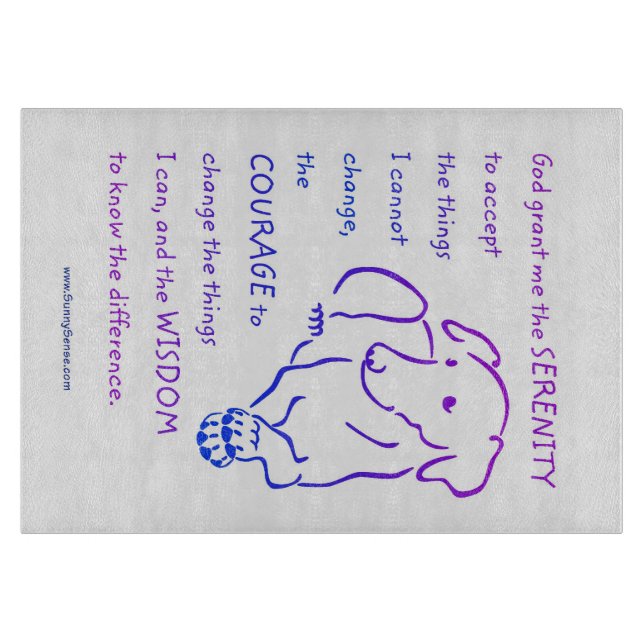 God grant me the SERENITY
to accept
the things
I cannot
change,
the
COURAGE to
change the things
I can, and the WISDOM
to know the difference.
www.SunnySense.com